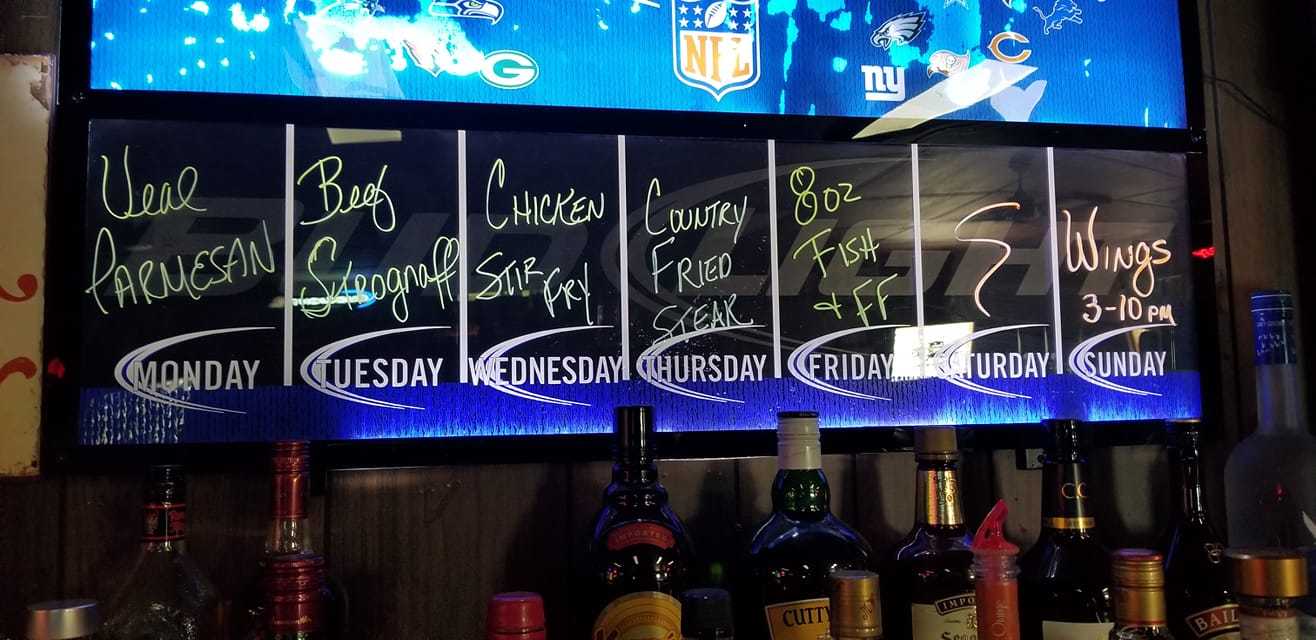 NFL
G
ny
C
BUD LIGHT
Veal
Parmesan
MONDAY
Beef
Strognaff
TUESDAY
Chicken
Stir Fry
WEDNESDAY
Country
Fried
Steak
THURSDAY
8oz
Fish
+ FF
FRIDAY
SATURDAY
Wings
3-10 pm
SUNDAY
IMPORTED
CUTTY
IMPO
C.C
BAIL